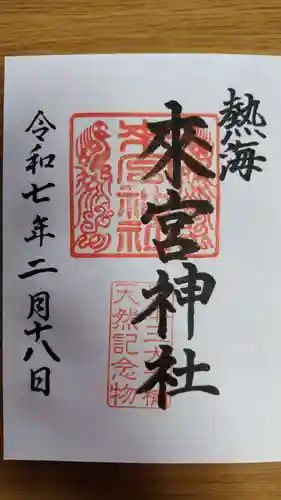 熱海
來宮神社
令和七年二月十八日
來宮神社
天然記念物